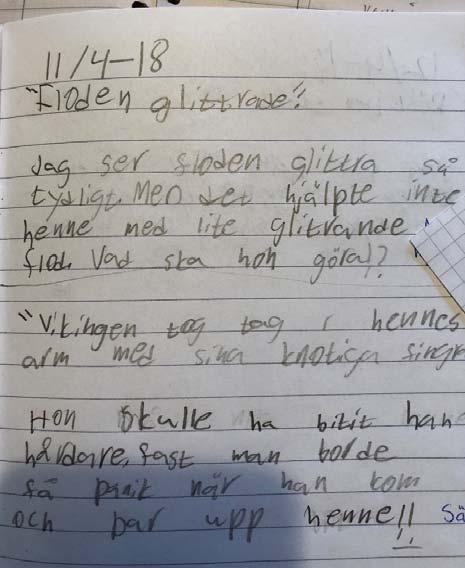 11/4-18
"Floden glittrade"!
Jag ser floden glittra så
tydligt. Men det hjälpte inte
henne med lite glitrande
flod. Vad ska hon göra!?
"Vikingen tog tag i hennes
arm med sina knotiga fingr
Hon skulle ha bitit han
hårdare, fast man borde
få panik när han kom
och bar upp henne!! Så